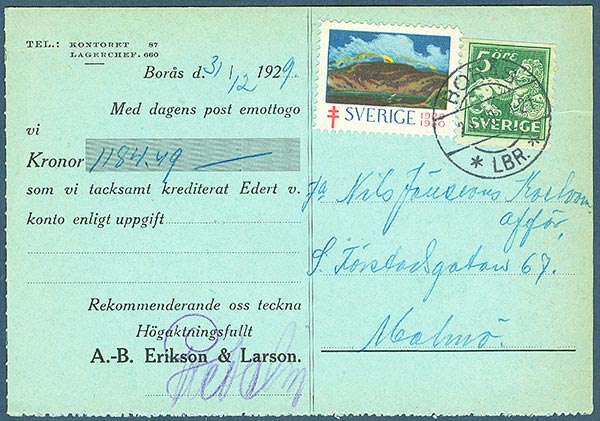 TEL.: KONTORET 87
LAGERCHEF. 660
Borås d. 31/12 1929.
Med dagens post emottogo
vi
Kronor 1184.49
som vi tacksamt krediterat Edert v.
konto enligt uppgift
Rekommenderande oss teckna
Högaktningsfullt
A.-B. Erikson & Larson.
SVERIGE 1929 1930
5 ÖRE
SVERIGE
BORÅS
* LBR. *
Fa Nils Jönssons
affär,
S. Förstadsgatan 67.
Malmö.